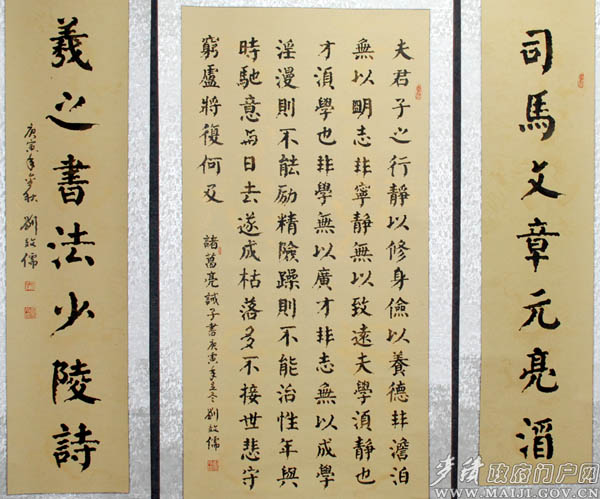 司馬文章元亮酒
夫君子之行靜以修身儉以養德非澹泊
無以明志非寧靜無以致遠夫學須靜也
才須學也非學無以廣才非志無以成學
淫漫則不能励精險躁則不能治性年與
時馳意與日去遂成枯落多不接世悲守
窮廬將復何及 諸葛亮誡子書庚寅年立冬劉儒
羲之書法少陵詩
庚寅年金秋 劉儒
麦积政府门户网
WWW.MAIJI.GOV.CN